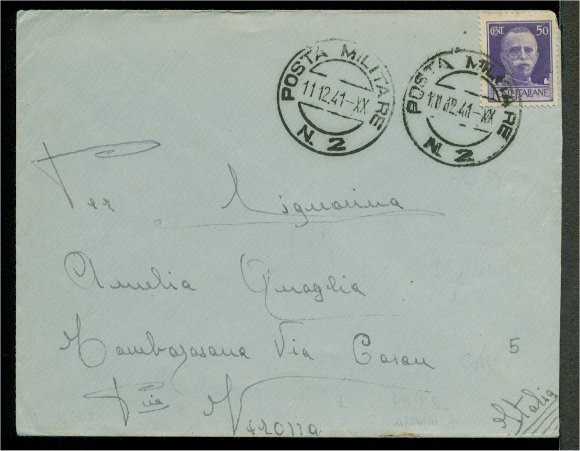 CENT. 50
POSTE ITALIANE
POSTA MILITARE
11.12.41-XX
N. 2
POSTA MILITARE
11.12.41-XX
N. 2
Per Signorina
Amelia Quaglia
Via Casari
5
Pvia Verona
Italia